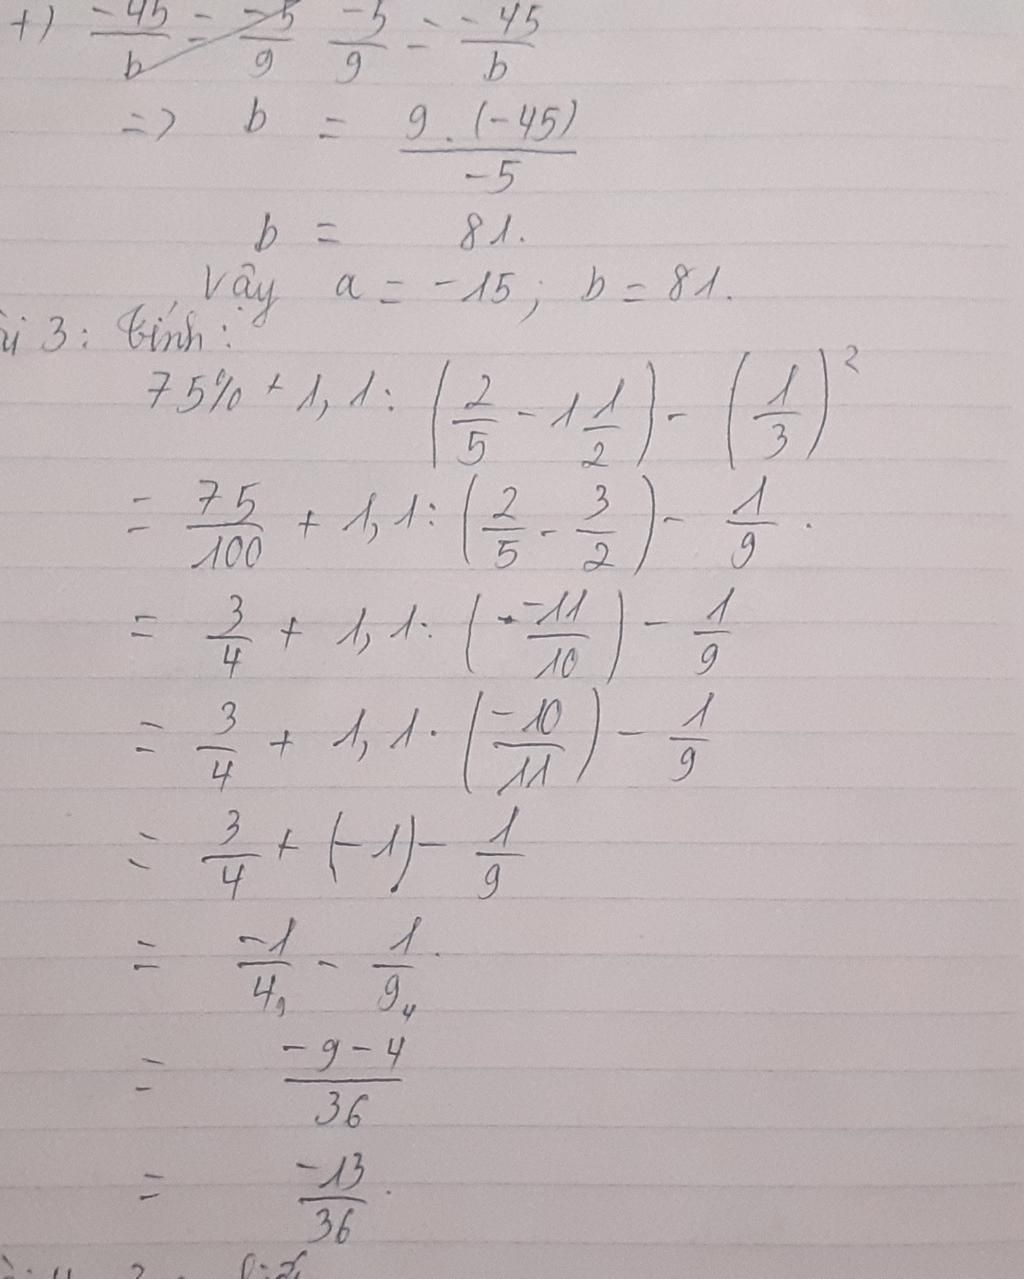 +) -45/b = -5/9 -5/9 = -45/b
=> b = 9.(-45)/-5
b = 81.
Vậy a = -15; b = 81.
3: tính:
75% + 1,1: (2/5 - 1 1/2) - (1/3)²
= 75/100 + 1,1: (2/5 - 3/2) - 1/9.
= 3/4 + 1,1: (-11/10) - 1/9
= 3/4 + 1,1. (-10/11) - 1/9
= 3/4 + (-1) - 1/9
= -1/4 9 - 1/9 4
= -9-4/36
= -13/36.